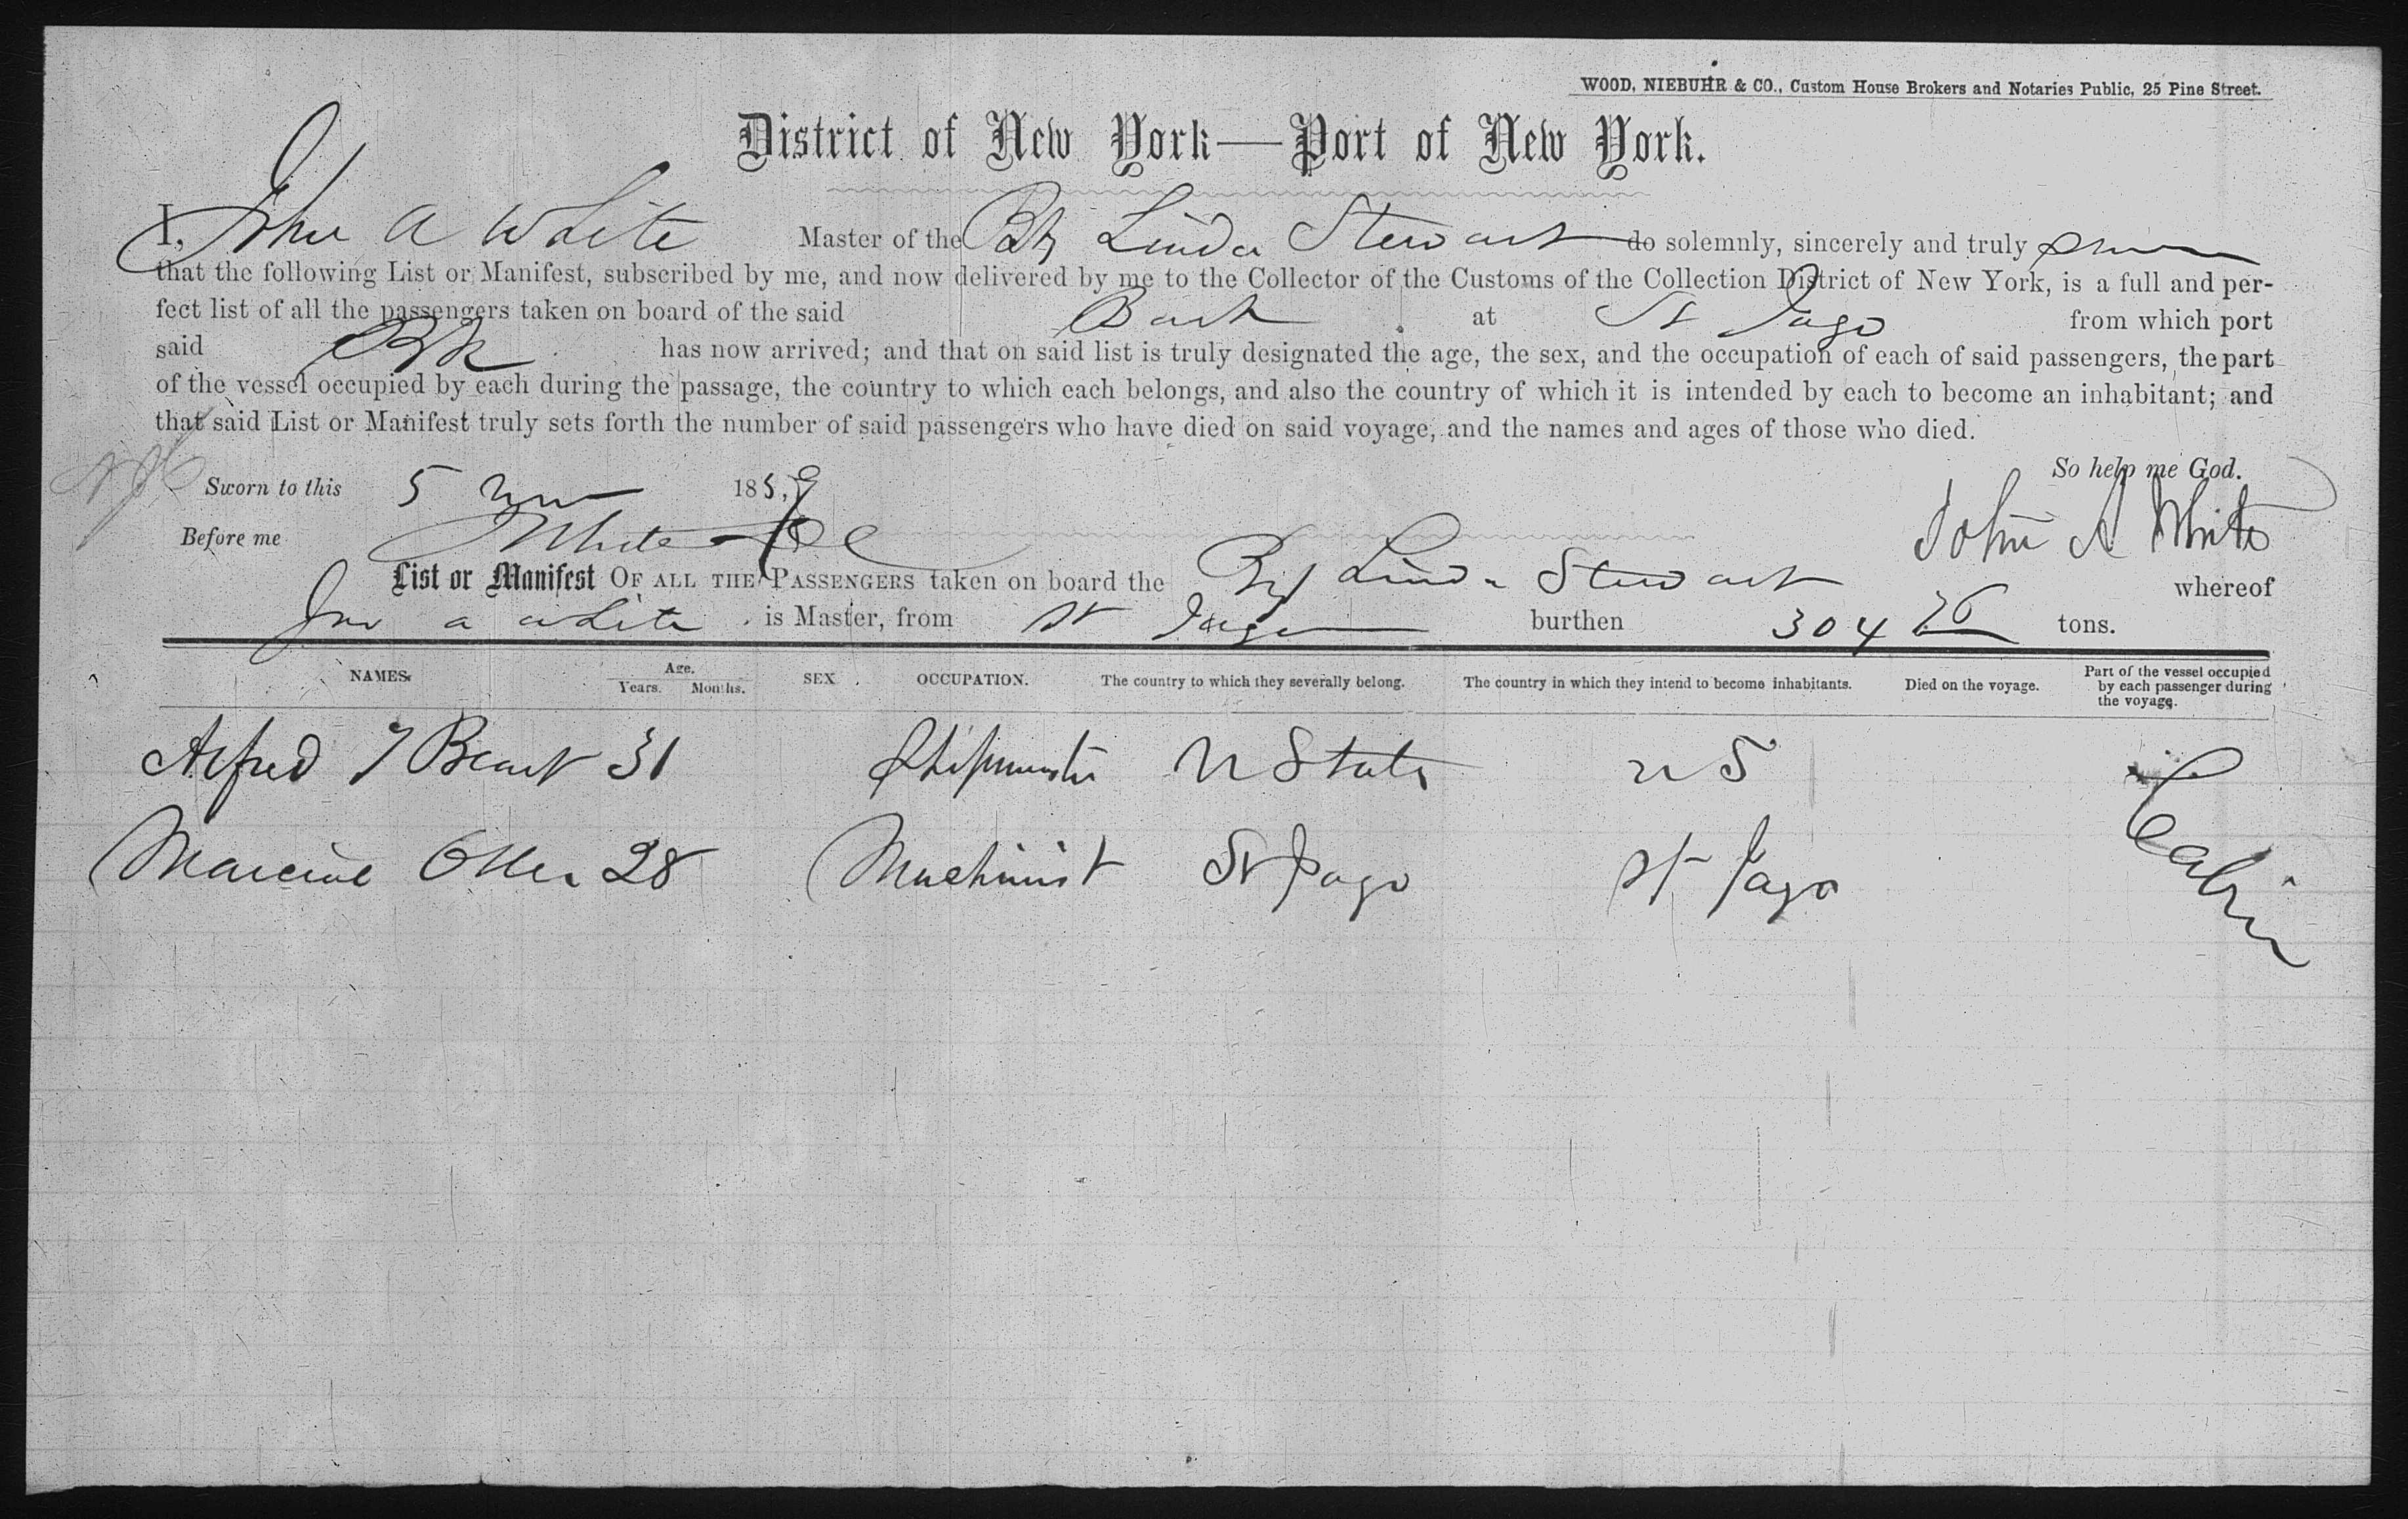 WOOD, NIEBUHR & CO., Custom House Brokers and Notaries Public, 25 Pine Street.
District of New York—Port of New York.
I, John A White Master of the Bk Linda Stewart do solemnly, sincerely and truly swear
that the following List or Manifest, subscribed by me, and now delivered by me to the Collector of the Customs of the Collection District of New York, is a full and per-
fect list of all the passengers taken on board of the said Bark at St Jago from which port
said Bk has now arrived; and that on said list is truly designated the age, the sex, and the occupation of each of said passengers, the part
of the vessel occupied by each during the passage, the country to which each belongs, and also the country of which it is intended by each to become an inhabitant; and
that said List or Manifest truly sets forth the number of said passengers who have died on said voyage, and the names and ages of those who died.
So help me God.
Sworn to this 5 1859
John A White
Before me
List or Manifest OF ALL THE PASSENGERS taken on board the Linda Stewart whereof
Jno A White is Master, from St Jago burthen 304 tons.
NAMES. Age. Years. Months. SEX OCCUPATION. The country to which they severally belong. The country in which they intend to become inhabitants. Died on the voyage. Part of the vessel occupied by each passenger during the voyage.
Alfred 31 Shipmaster U States U S
28 Machinist St Jago St Jago
Cabin